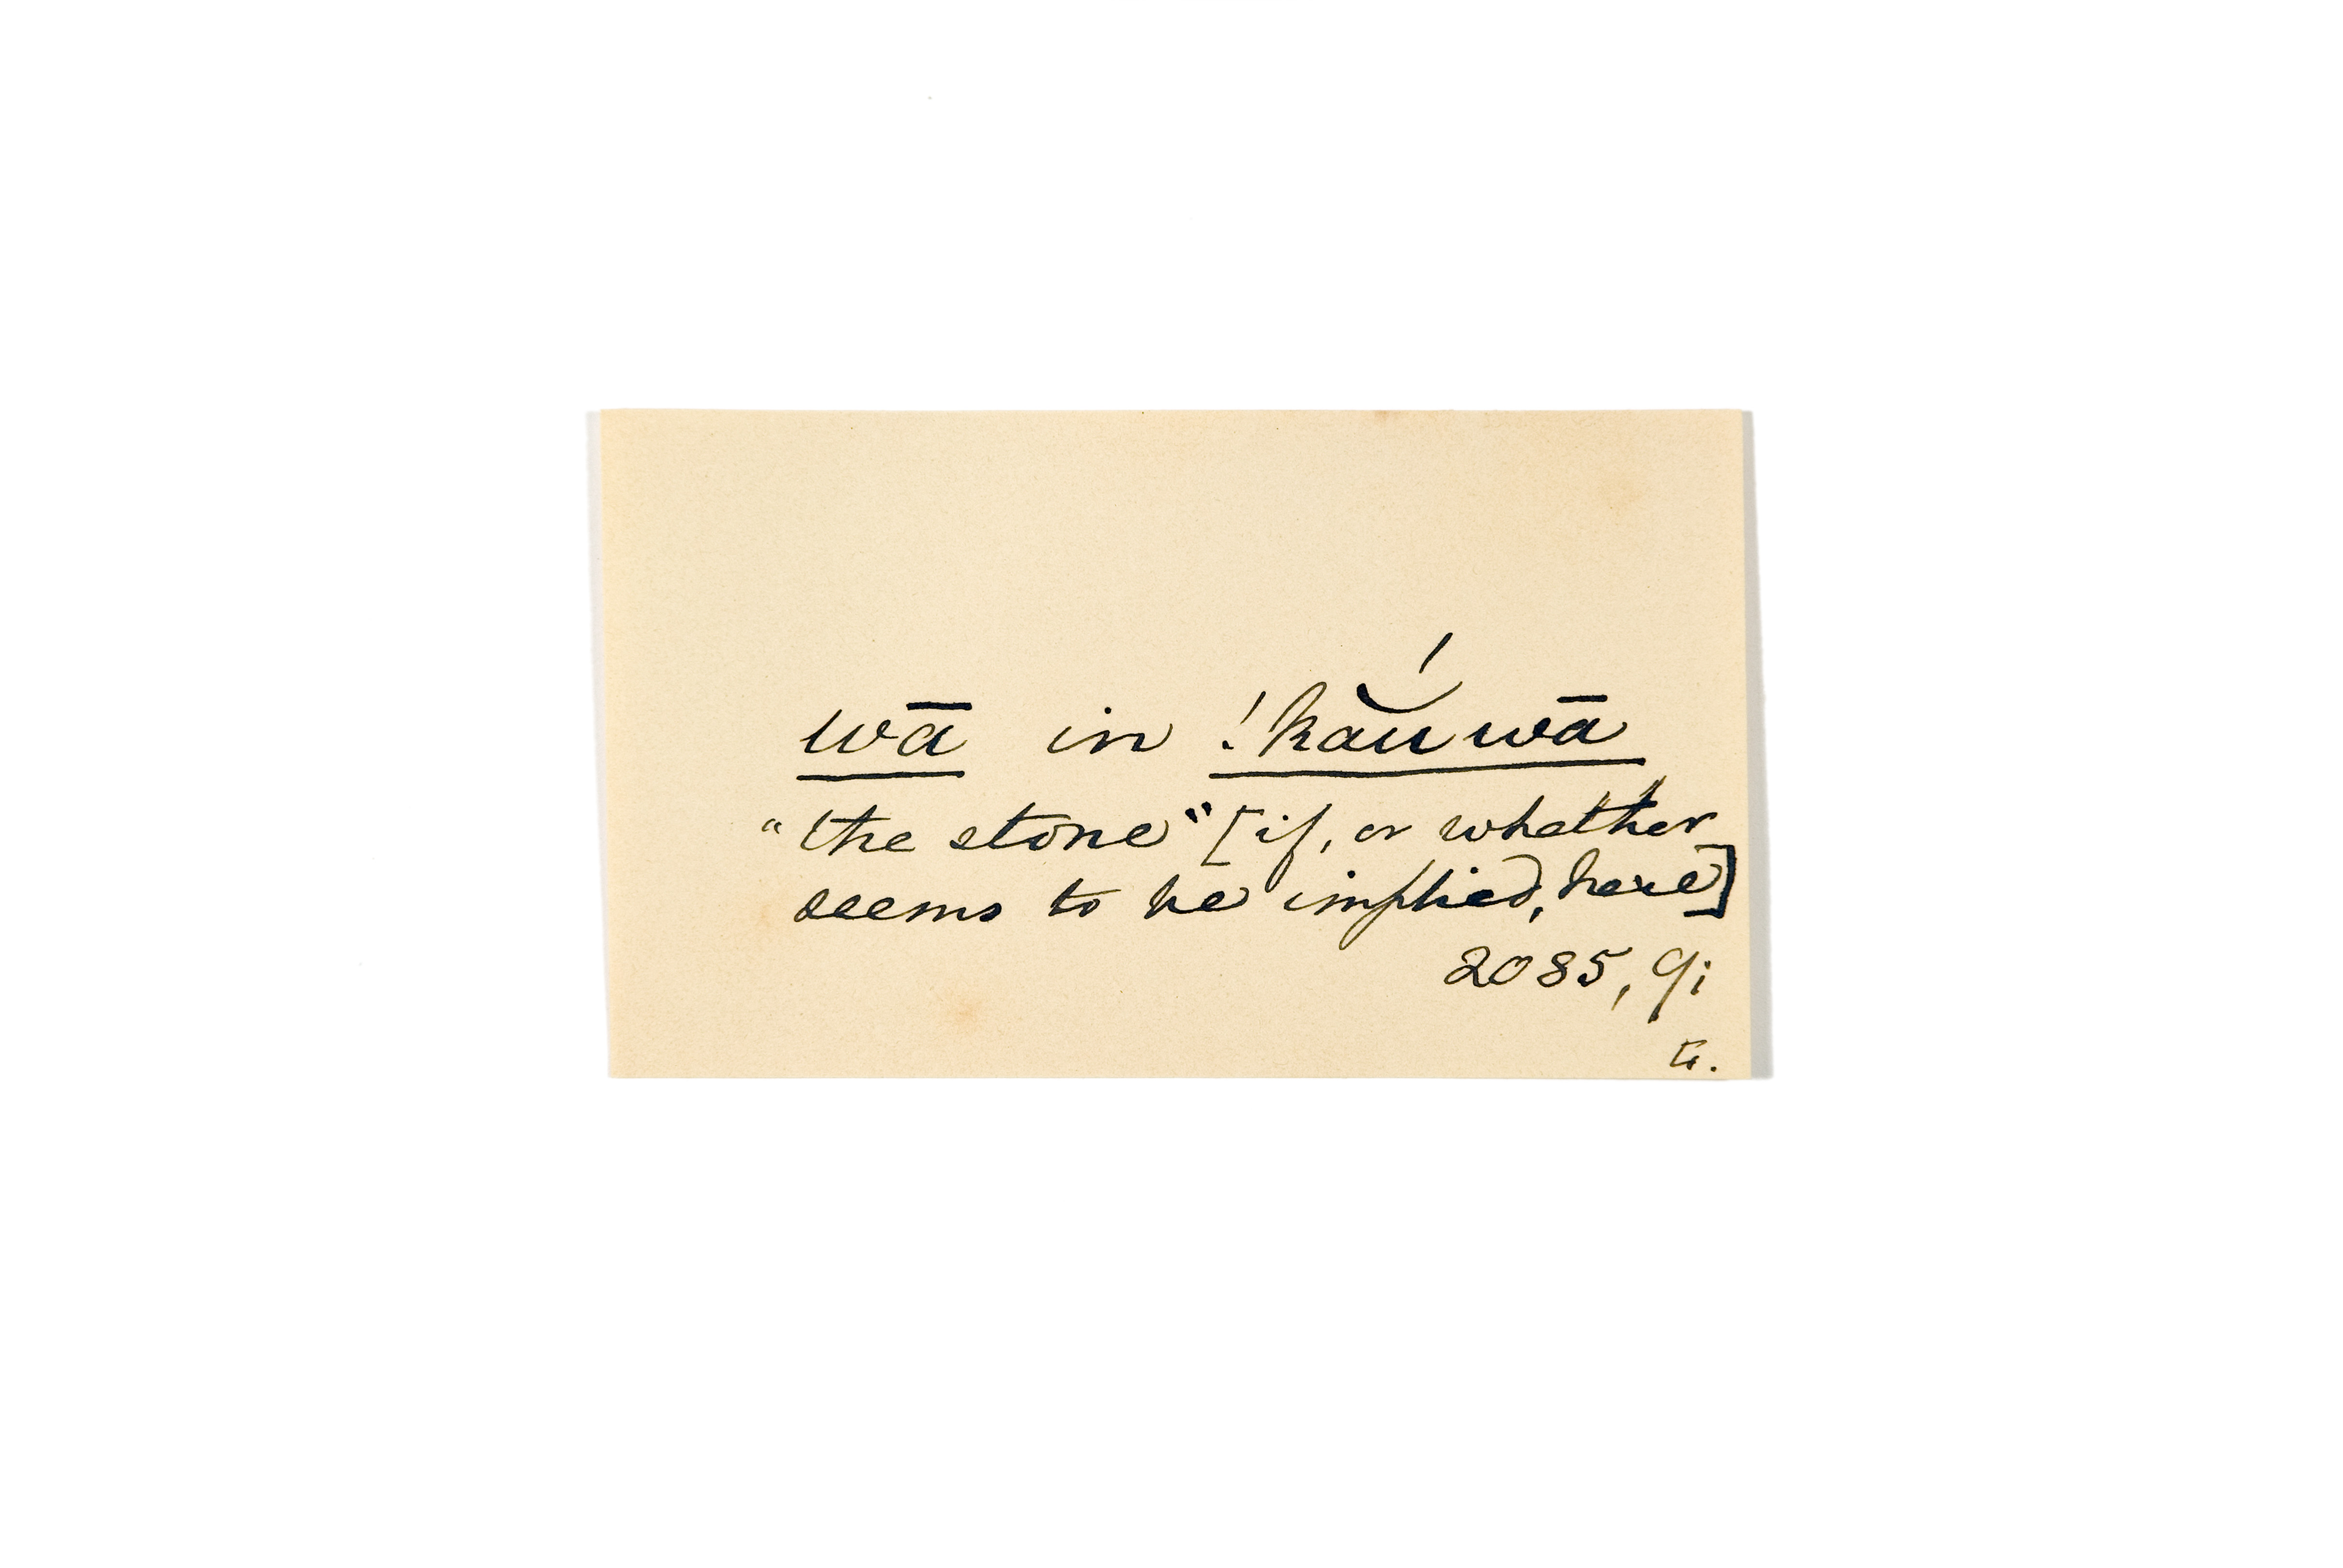 wā in !kăú wā
"the stone" [if, or whether
seems to be implied, here]
2085, 9;